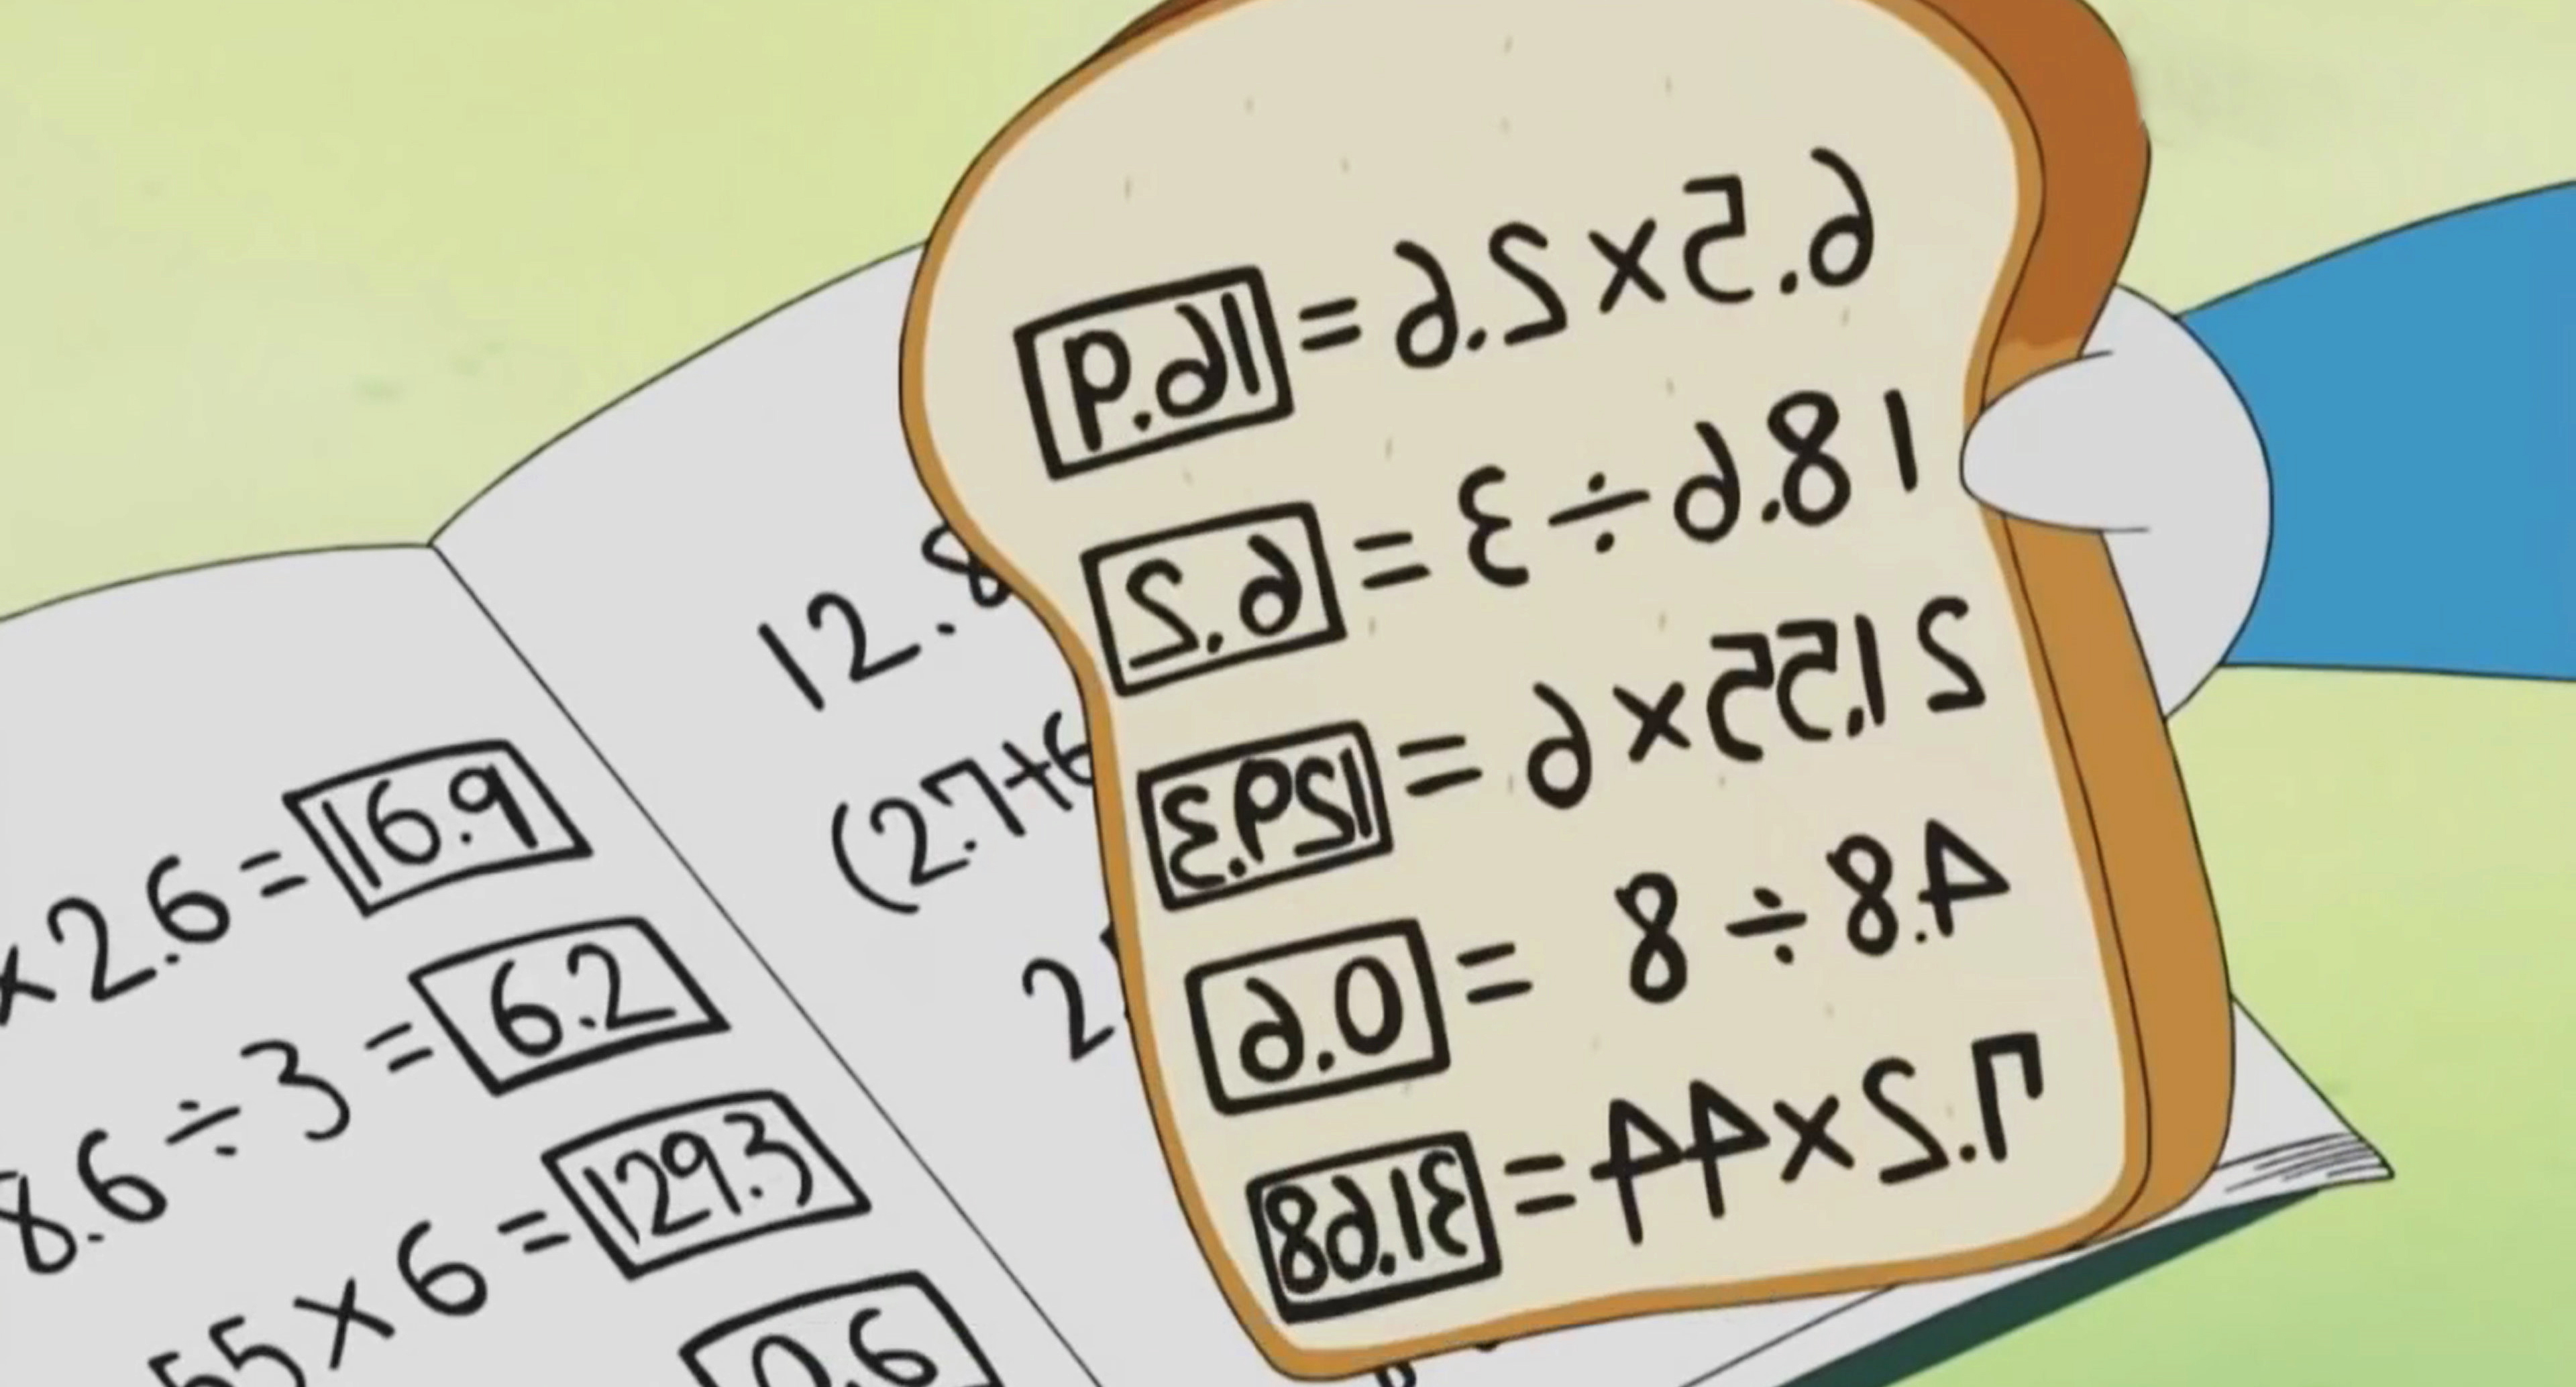 ×2.6=16.9
8.6÷3=6.2
55×6=129.3
0.6
12.8
(2.7+6
2
6.5×2.6=16.9
18.6÷3=6.2
21.55×6=129.3
4.8÷8=0.6
7.2×44=31.68